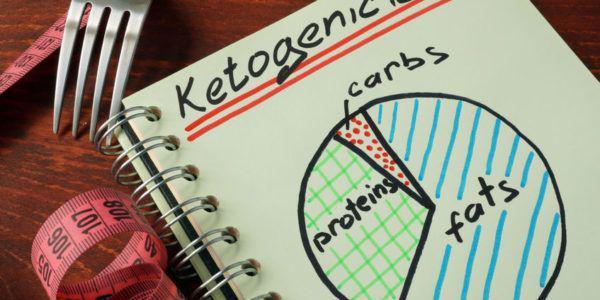 Ketogenic
carbs
proteins
fats
107
106
105